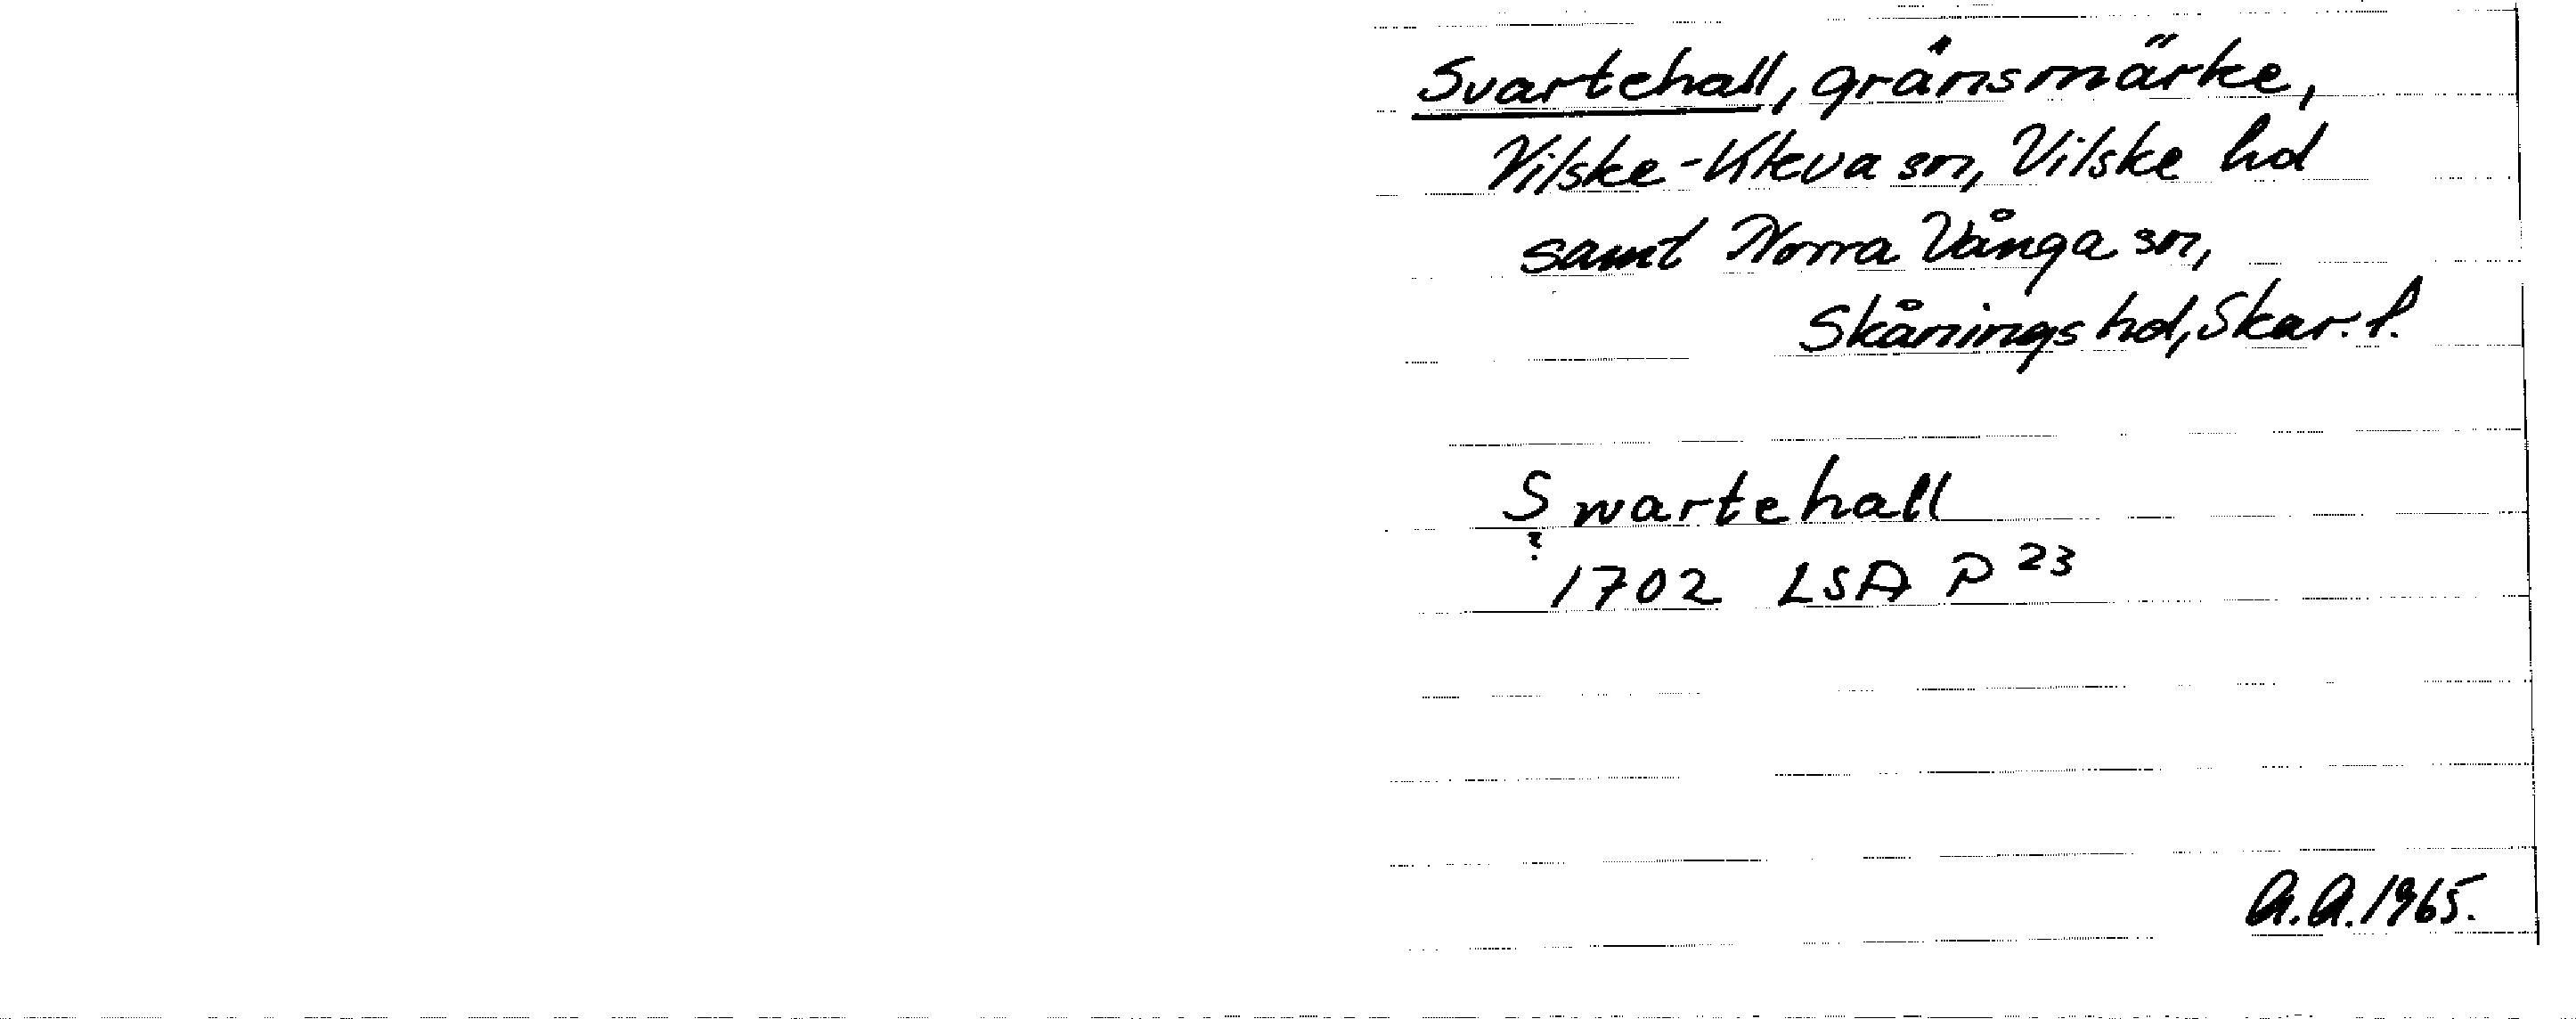 Svartehall, gränsmärke,
Vilske-Kleva sn, Vilske hd
samt Norra Vånga sn,
Skånings hd, Skar. l.
Swartehall
?
1702 LSA P 23
A.A. 1965.